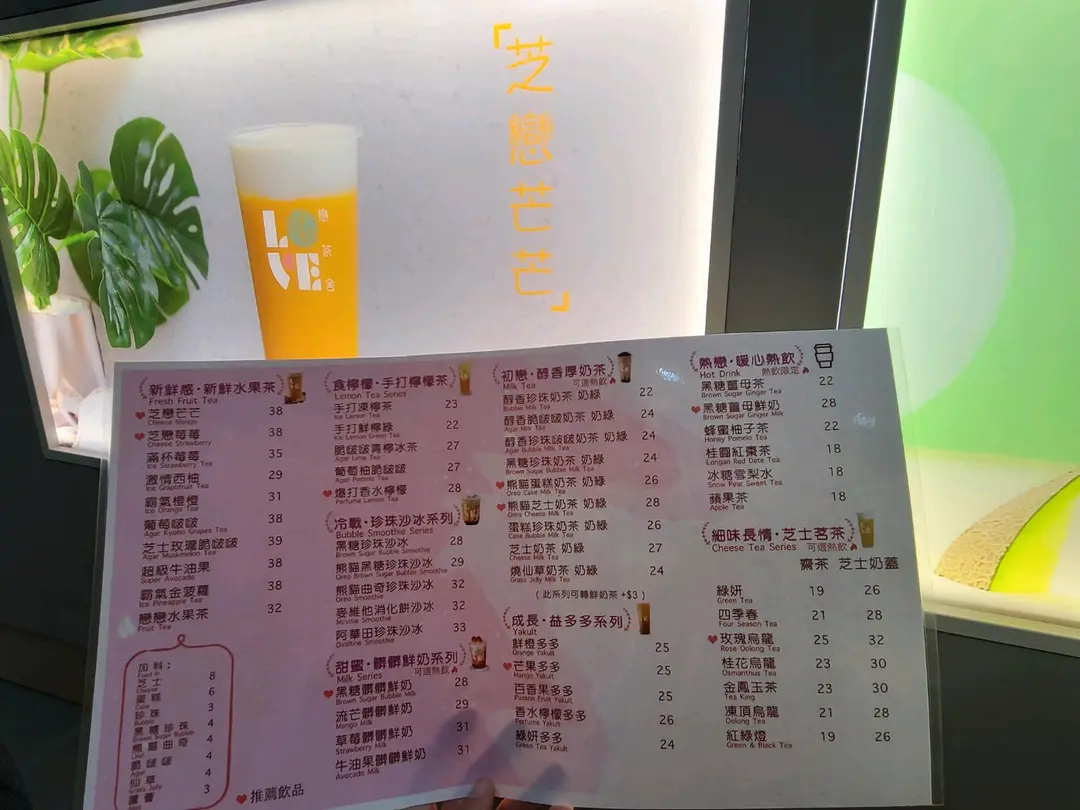 「芝戀芒芒」
LOVE
戀茶舍
新鮮感·新鮮水果茶
Fresh Fruit Tea
芝戀芒芒 38
Cheese Mango
芝戀莓莓 38
Cheese Strawberry
滿杯莓莓 35
Ice Strawberry Tea
激情西柚 29
Ice Grapefruit Tea
霸氣橙橙 31
Ice Orange Tea
葡萄啵啵 38
Agar Kyoho Grapes Tea
芝士玫瓏脆啵啵 39
Agar Muskmelon Tea
超級牛油果 38
Super Avocado
霸氣金菠蘿 38
Ice Pineapple Tea
戀戀水果茶 32
Fruit Tea
加料:
芝士 8
Cheese
蛋糕 6
Cake
珍珠 3
Bubble
黑糖珍珠 4
Brown Sugar Bubble
熊貓曲奇 4
Oreo
脆啵啵 4
Agar
仙草 4
Grass Jelly
蘆薈 3
推薦飲品
食檸檬·手打檸檬茶
Lemon Tea Series
手打凍檸茶 23
Ice Lemon Tea
手打鮮檸綠 22
Ice Lemon Green Tea
脆啵啵青檸冰茶 27
Agar Lime Tea
葡萄柚脆啵啵 27
Agar Pomelo Tea
爆打香水檸檬 28
Perfume Lemon Tea
冷戰·珍珠沙冰系列
Bubble Smoothie Series
黑糖珍珠沙冰 28
Brown Sugar Bubble Smoothie
熊貓黑糖珍珠沙冰 29
Oreo Brown Sugar Bubble Smoothie
熊貓曲奇珍珠沙冰 32
Oreo Smoothie
麥維他消化餅沙冰 32
Mcvitie Smoothie
阿華田珍珠沙冰 33
Ovaltine Smoothie
甜蜜·髒髒鮮奶系列
Milk Series 可選熱飲
黑糖髒髒鮮奶 28
Brown Sugar Bubble Milk
流芒髒髒鮮奶 29
Mango Milk
草莓髒髒鮮奶 31
Strawberry Milk
牛油果髒髒鮮奶 31
Avocado Milk
初戀·醇香厚奶茶
Milk Tea 可選熱飲
醇香珍珠奶茶 奶綠 22
Bubble Milk Tea
醇香脆啵啵奶茶 奶綠 24
Agar Milk Tea
醇香珍珠啵啵奶茶 奶綠 24
Agar Bubble Milk Tea
黑糖珍珠奶茶 奶綠 24
Brown Sugar Bubble Milk Tea
熊貓蛋糕奶茶 奶綠 26
Oreo Cake Milk Tea
熊貓芝士奶茶 奶綠 28
Oreo Cheese Milk Tea
蛋糕珍珠奶茶 奶綠 26
Cake Bubble Milk Tea
芝士奶茶 奶綠 27
Cheese Milk Tea
燒仙草奶茶 奶綠 24
Grass Jelly Milk Tea
(此系列可轉鮮奶茶 +$3)
成長·益多多系列
Yakult
鮮橙多多 25
Orange Yakult
芒果多多 25
Mango Yakult
百香果多多 25
Passion Fruit Yakult
香水檸檬多多 26
Perfume Yakult
綠妍多多 24
Green Tea Yakult
熱戀·暖心熱飲
Hot Drink 熱飲限定
黑糖薑母茶 22
Brown Sugar Ginger Tea
黑糖薑母鮮奶 28
Brown Sugar Ginger Milk
蜂蜜柚子茶 22
Honey Pomelo Tea
桂圓紅棗茶 18
Longan Red Date Tea
冰糖雪梨水 18
Snow Pear Sweet Tea
蘋果茶 18
Apple Tea
細味長情·芝士茗茶
Cheese Tea Series 可選熱飲
齋茶 芝士奶蓋
綠妍 19 26
Green Tea
四季春 21 28
Four Season Tea
玫瑰烏龍 25 32
Rose Oolong Tea
桂花烏龍 23 30
Osmanthus Tea
金鳳玉茶 23 30
Tea King
凍頂烏龍 21 28
Oolong Tea
紅綠燈 19 26
Green & Black Tea